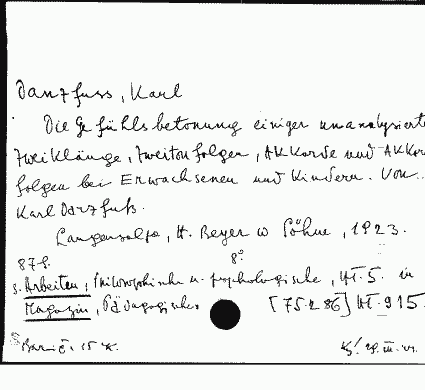 Danzfuss, Karl
Die Gefühlsbetonung einiger unanalysierte
Zweiklänge, Zweitonfolgen, Akkorde und Akkor
folgen bei Erwachsenen und Kindern. Von
Karl Danzfuß.
Langensalza, H. Beyer u Söhne, 1923.
87 S. 8°
s. Arbeiten, Philosophische u. psychologische, Ht. 5. in
Magazin, Pädagogisches [75.286] Ht. 915
15 K.